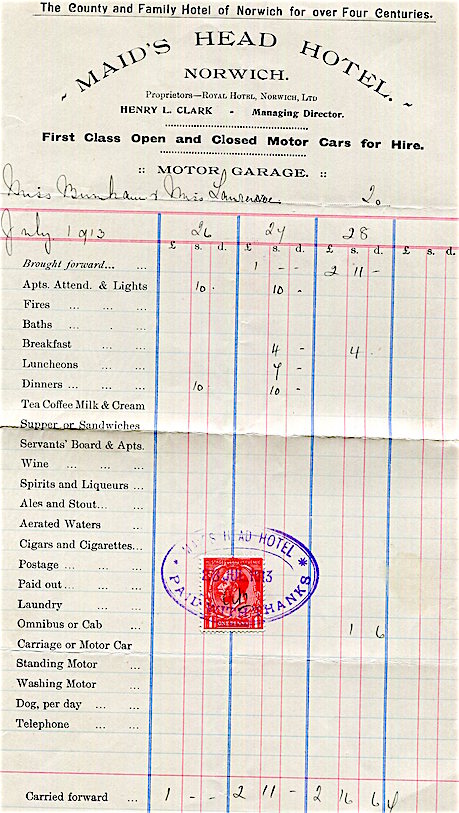 The County and Family Hotel of Norwich for over Four Centuries.
~ MAID'S HEAD HOTEL. ~
NORWICH.
Proprietors—ROYAL HOTEL, NORWICH, LTD
HENRY L. CLARK - Managing Director.
First Class Open and Closed Motor Cars for Hire.
:: MOTOR GARAGE. ::
Miss Burnham & Miss Lawrence 20
July 1913 26 27 28
£ s. d. £ s. d. £ s. d. £ s. d.
Brought forward... ... 1 - - 2 11 -
Apts. Attend. & Lights 10 . 10 -
Fires ... ... ...
Baths ... . ...
Breakfast ... ... 4 - 4 .
Luncheons ... ... 7 -
Dinners ... ... ... 10 . 10 -
Tea Coffee Milk & Cream
Supper or Sandwiches
Servants' Board & Apts.
Wine ... ... ...
Spirits and Liqueurs ...
Ales and Stout... ...
Aerated Waters ..
Cigars and Cigarettes...
Postage ... ... ...
Paid out... ... ...
Laundry ... ...
Omnibus or Cab ... 1 6
Carriage or Motor Car
Standing Motor ...
Washing Motor ...
Dog, per day ... ...
Telephone ... ...
MAID'S HEAD HOTEL
28 JUL 1913
PAID WITH THANKS
ONE PENNY
Carried forward ... 1 - - 2 11 - 2 16 6